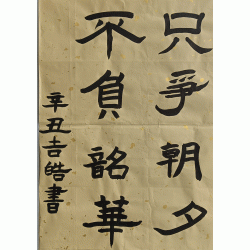 只爭朝夕
不負韶華
辛丑吉皓書